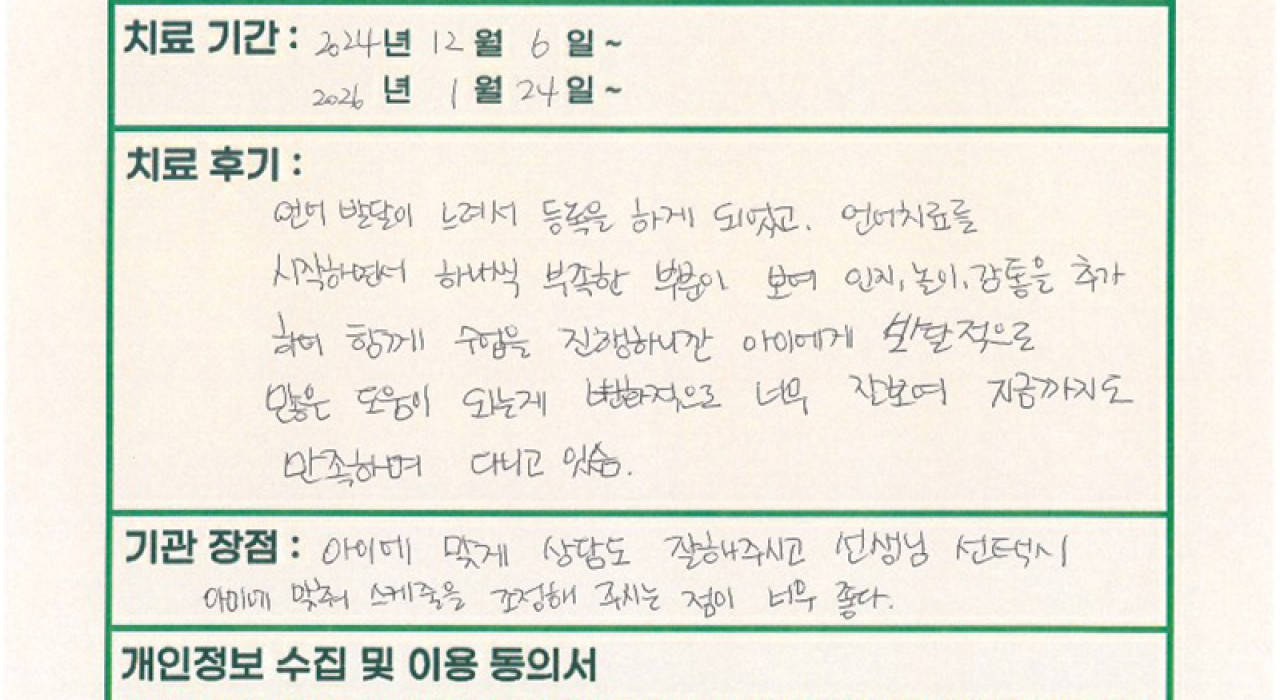 치료 기간 : 2024년 12월 6일 ~
2026년 1월 24일 ~
치료 후기 :
언어 발달이 느려서 등록을 하게 되었고. 언어치료를
시작하면서 하나씩 부족한 부분이 보여 인지, 놀이, 감통을 추가
하여 함께 수업을 진행하니깐 아이에게 발달적으로
많은 도움이 되는게 변화적으로 너무 잘보여 지금까지도
만족하며 다니고 있슴.
기관 장점 : 아이에 맞게 상담도 잘해주시고 선생님 선택시
아이에 맞춰 스케줄을 조정해 주시는 점이 너무 좋다.
개인정보 수집 및 이용 동의서